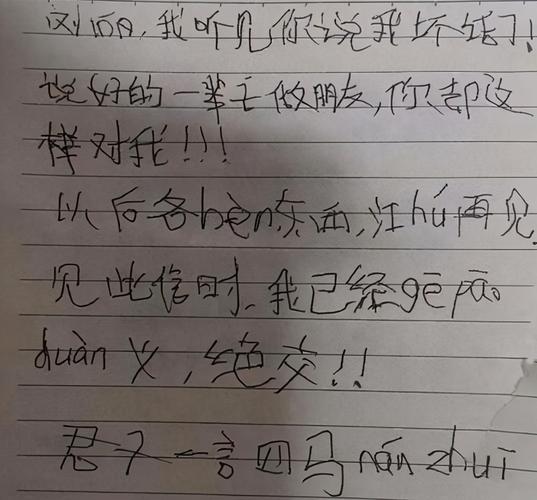 刘洒,我听见你说我坏话了!
说好的一辈子做朋友,你却这
样对我!!!
以后各bèn东西,江hú再见
见此信时,我已经gē pāo
duàn义,绝交!!
君子一言四马nán zhuī